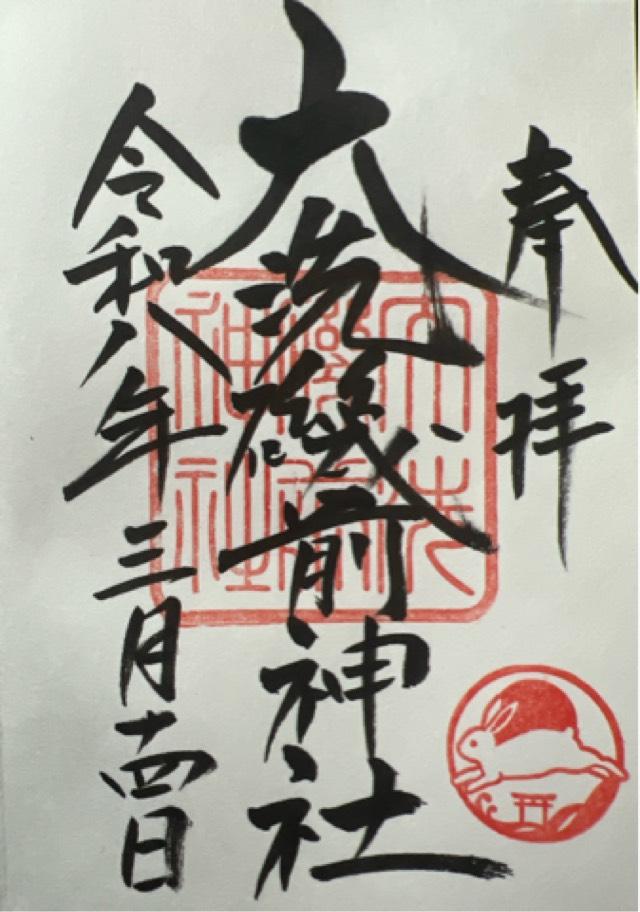 奉拝
大洗磯前神社
大洗磯前神社
令和八年三月十四日